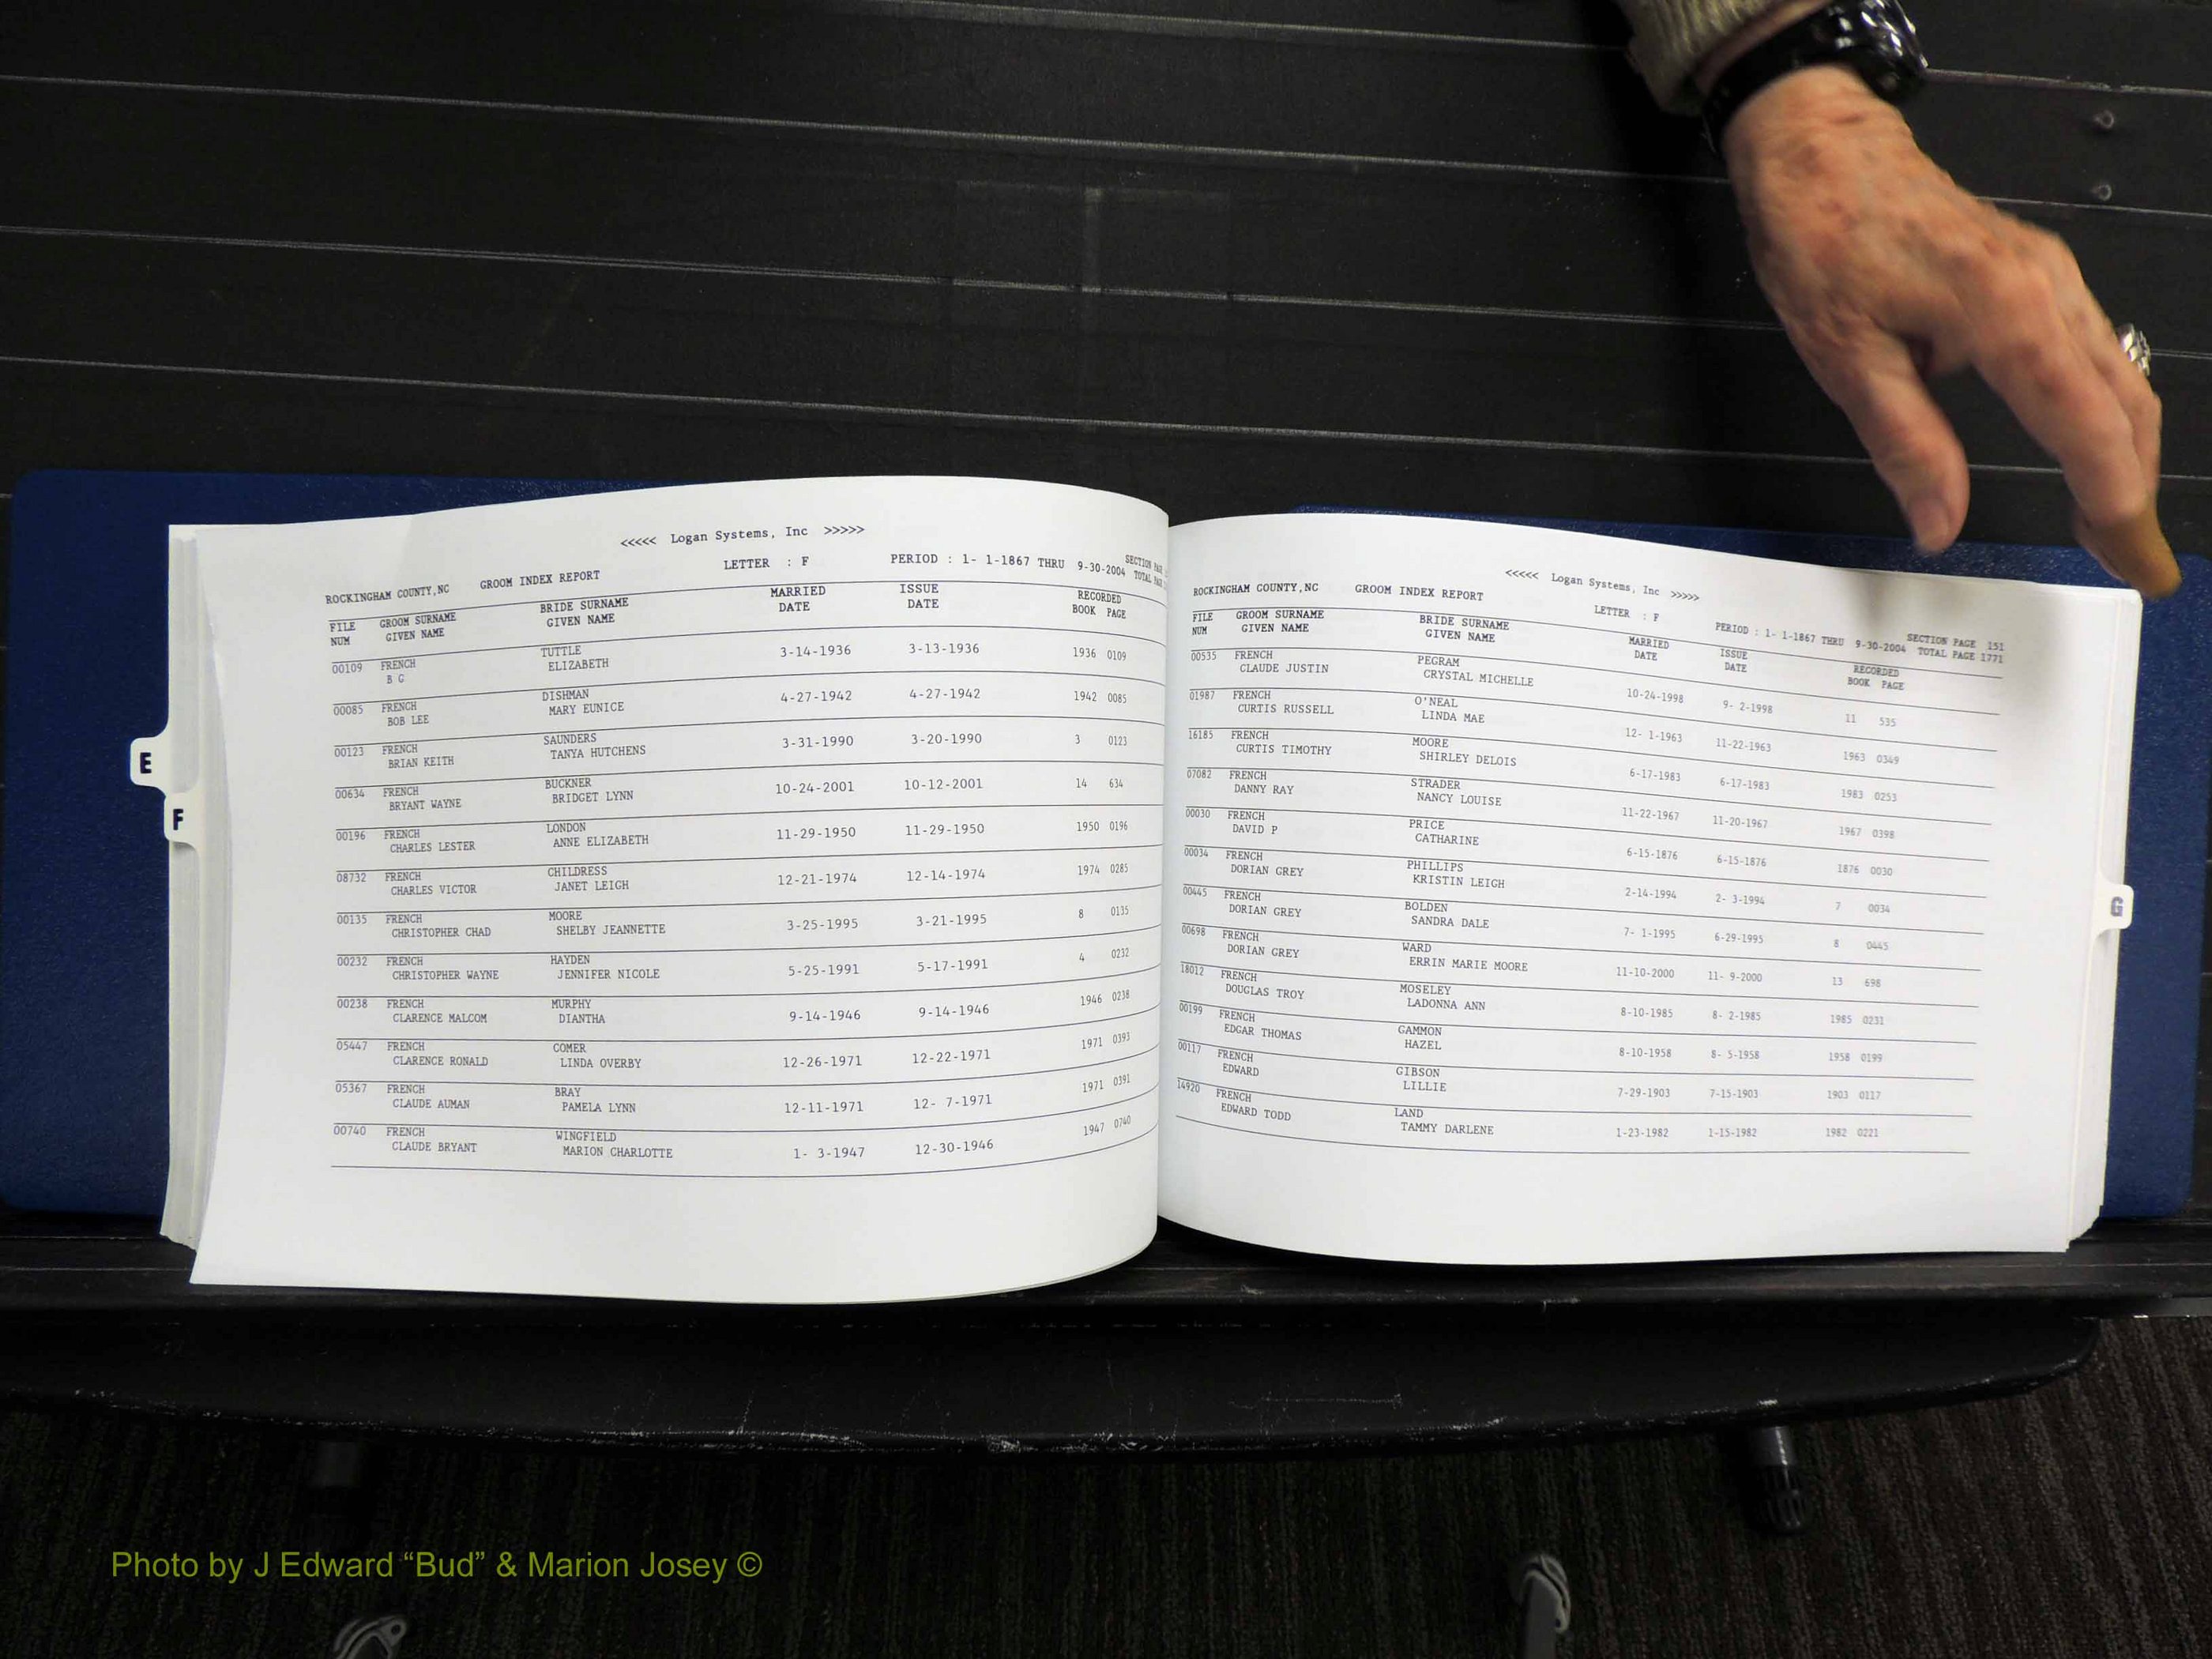 <<<<< Logan Systems, Inc >>>>>
ROCKINGHAM COUNTY,NC GROOM INDEX REPORT LETTER : F PERIOD : 1- 1-1867 THRU 9-30-2004 SECTION PAGE
TOTAL PAGE
FILE GROOM SURNAME BRIDE SURNAME MARRIED ISSUE RECORDED
NUM GIVEN NAME GIVEN NAME DATE DATE BOOK PAGE
00109 FRENCH TUTTLE 3-14-1936 3-13-1936 1936 0109
B G ELIZABETH
00085 FRENCH DISHMAN 4-27-1942 4-27-1942 1942 0085
BOB LEE MARY EUNICE
00123 FRENCH SAUNDERS 3-31-1990 3-20-1990 3 0123
BRIAN KEITH TANYA HUTCHENS
00634 FRENCH BUCKNER 10-24-2001 10-12-2001 14 634
BRYANT WAYNE BRIDGET LYNN
00196 FRENCH LONDON 11-29-1950 11-29-1950 1950 0196
CHARLES LESTER ANNE ELIZABETH
08732 FRENCH CHILDRESS 12-21-1974 12-14-1974 1974 0285
CHARLES VICTOR JANET LEIGH
00135 FRENCH MOORE 3-25-1995 3-21-1995 8 0135
CHRISTOPHER CHAD SHELBY JEANNETTE
00232 FRENCH HAYDEN 5-25-1991 5-17-1991 4 0232
CHRISTOPHER WAYNE JENNIFER NICOLE
00238 FRENCH MURPHY 9-14-1946 9-14-1946 1946 0238
CLARENCE MALCOM DIANTHA
05447 FRENCH COMER 12-26-1971 12-22-1971 1971 0393
CLARENCE RONALD LINDA OVERBY
05367 FRENCH BRAY 12-11-1971 12- 7-1971 1971 0391
CLAUDE AUMAN PAMELA LYNN
00740 FRENCH WINGFIELD 1- 3-1947 12-30-1946 1947 0740
CLAUDE BRYANT MARION CHARLOTTE
E
F
<<<<< Logan Systems, Inc >>>>>
ROCKINGHAM COUNTY,NC GROOM INDEX REPORT LETTER : F PERIOD : 1- 1-1867 THRU 9-30-2004 SECTION PAGE 151
TOTAL PAGE 1771
FILE GROOM SURNAME BRIDE SURNAME MARRIED ISSUE RECORDED
NUM GIVEN NAME GIVEN NAME DATE DATE BOOK PAGE
00535 FRENCH PEGRAM 10-24-1998 9- 2-1998 11 535
CLAUDE JUSTIN CRYSTAL MICHELLE
01987 FRENCH O'NEAL 12- 1-1963 11-22-1963 1963 0349
CURTIS RUSSELL LINDA MAE
16185 FRENCH MOORE 6-17-1983 6-17-1983 1983 0253
CURTIS TIMOTHY SHIRLEY DELOIS
07082 FRENCH STRADER 11-22-1967 11-20-1967 1967 0398
DANNY RAY NANCY LOUISE
00030 FRENCH PRICE 6-15-1876 6-15-1876 1876 0030
DAVID P CATHARINE
00034 FRENCH PHILLIPS 2-14-1994 2- 3-1994 7 0034
DORIAN GREY KRISTIN LEIGH
00445 FRENCH BOLDEN 7- 1-1995 6-29-1995 8 0445
DORIAN GREY SANDRA DALE
00698 FRENCH WARD 11-10-2000 11- 9-2000 13 698
DORIAN GREY ERRIN MARIE MOORE
18012 FRENCH MOSELEY 8-10-1985 8- 2-1985 1985 0231
DOUGLAS TROY LADONNA ANN
00199 FRENCH GAMMON 8-10-1958 8- 5-1958 1958 0199
EDGAR THOMAS HAZEL
00117 FRENCH GIBSON 7-29-1903 7-15-1903 1903 0117
EDWARD LILLIE
14920 FRENCH LAND 1-23-1982 1-15-1982 1982 0221
EDWARD TODD TAMMY DARLENE
G
Photo by J Edward “Bud” & Marion Josey ©